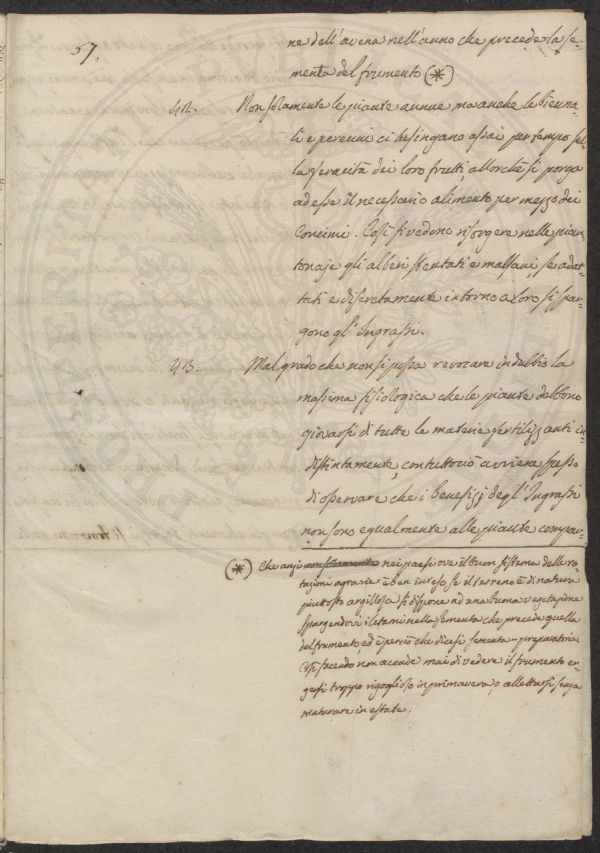 57.
ne dell'avena nell'anno che precede la se-
menta del frumento (*)
42. Non solamente le piante annue ma anche le bienna-
li e perenni ci lusingano assai per tempo sul-
la feracità dei loro frutti, allorchè si porga
ad esse il necessario alimento per mezzo dei
Concimi. Così si vedono risorgere nelle pian-
tonaje gli alberi stentati e malsani, se adat-
tati e discretamente intorno a loro si spar-
gono gl'Ingrassi.
43. Malgrado che non si possa revocare in dubbio la
massima fisiologica che le piante debbono
giovarsi di tutte le materie fertilizzanti in-
distintamente, contuttociò avviene spesso
di osservare che i benefizj degl'Ingrassi
non sono egualmente alle piante compar-
(*) Che anzi nei paesi ove il buon sistema delle ro-
tazioni agrarie è ben inteso se il terreno è di natura
piuttosto argillosa si dispone ad una buona vegetazione
spargendovi i letami nella sementa che precede quella
del frumento, ed è perciò che dicesi sementa-preparatoria
Così facendo non accade mai di vedere il frumento er-
gersi troppo rigoglioso in primavera, o allettarsi senza
maturare in estate.